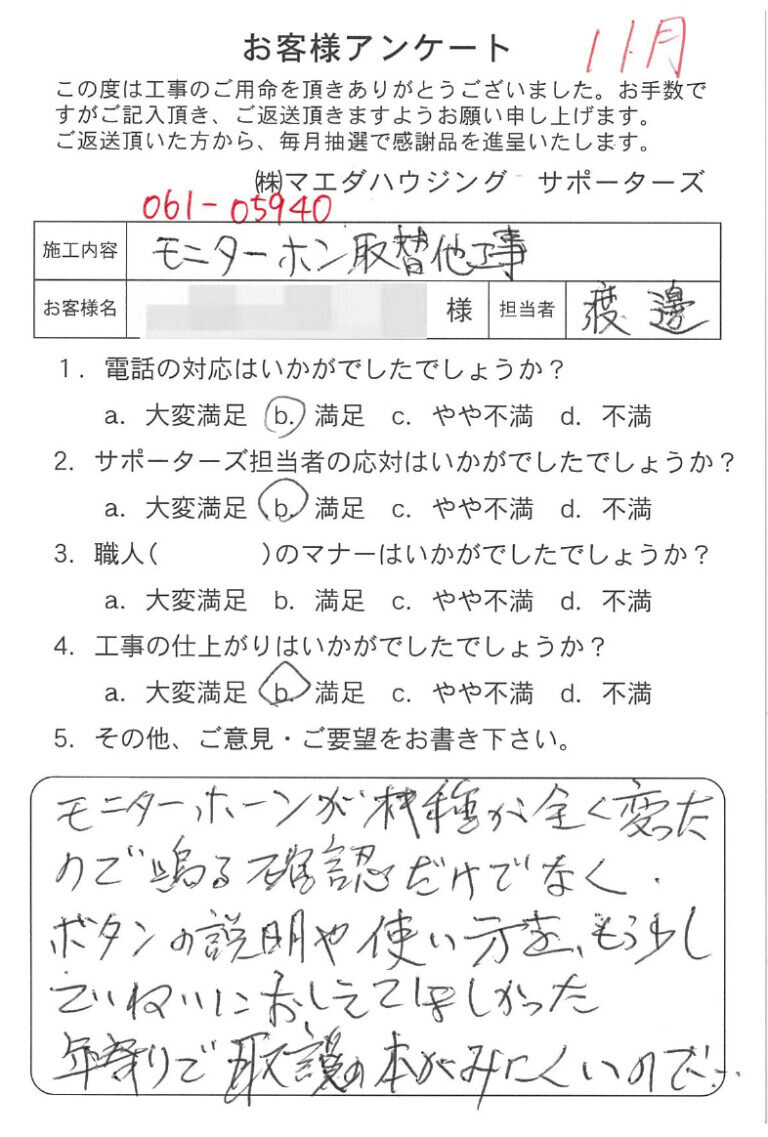 お客様アンケート
11月
この度は工事のご用命を頂きありがとうございました。お手数で
すがご記入頂き、ご返送頂きますようお願い申し上げます。
ご返送頂いた方から、毎月抽選で感謝品を進呈いたします。
㈱マエダハウジング　サポーターズ
061-05940
施工内容 モニターホン取替他工事
お客様名 様 担当者 渡邊
1. 電話の対応はいかがでしたでしょうか？
a. 大変満足 b. 満足 c. やや不満 d. 不満
2. サポーターズ担当者の応対はいかがでしたでしょうか？
a. 大変満足 b. 満足 c. やや不満 d. 不満
3. 職人(　　　　)のマナーはいかがでしたでしょうか？
a. 大変満足 b. 満足 c. やや不満 d. 不満
4. 工事の仕上がりはいかがでしたでしょうか？
a. 大変満足 b. 満足 c. やや不満 d. 不満
5. その他、ご意見・ご要望をお書き下さい。
モニターホーンが機種が全く変った
ので鳴る確認だけでなく、
ボタンの説明や使い方を、もう少し
ていねいにおしえてほしかった
年寄りで取説の本がみにくいので…